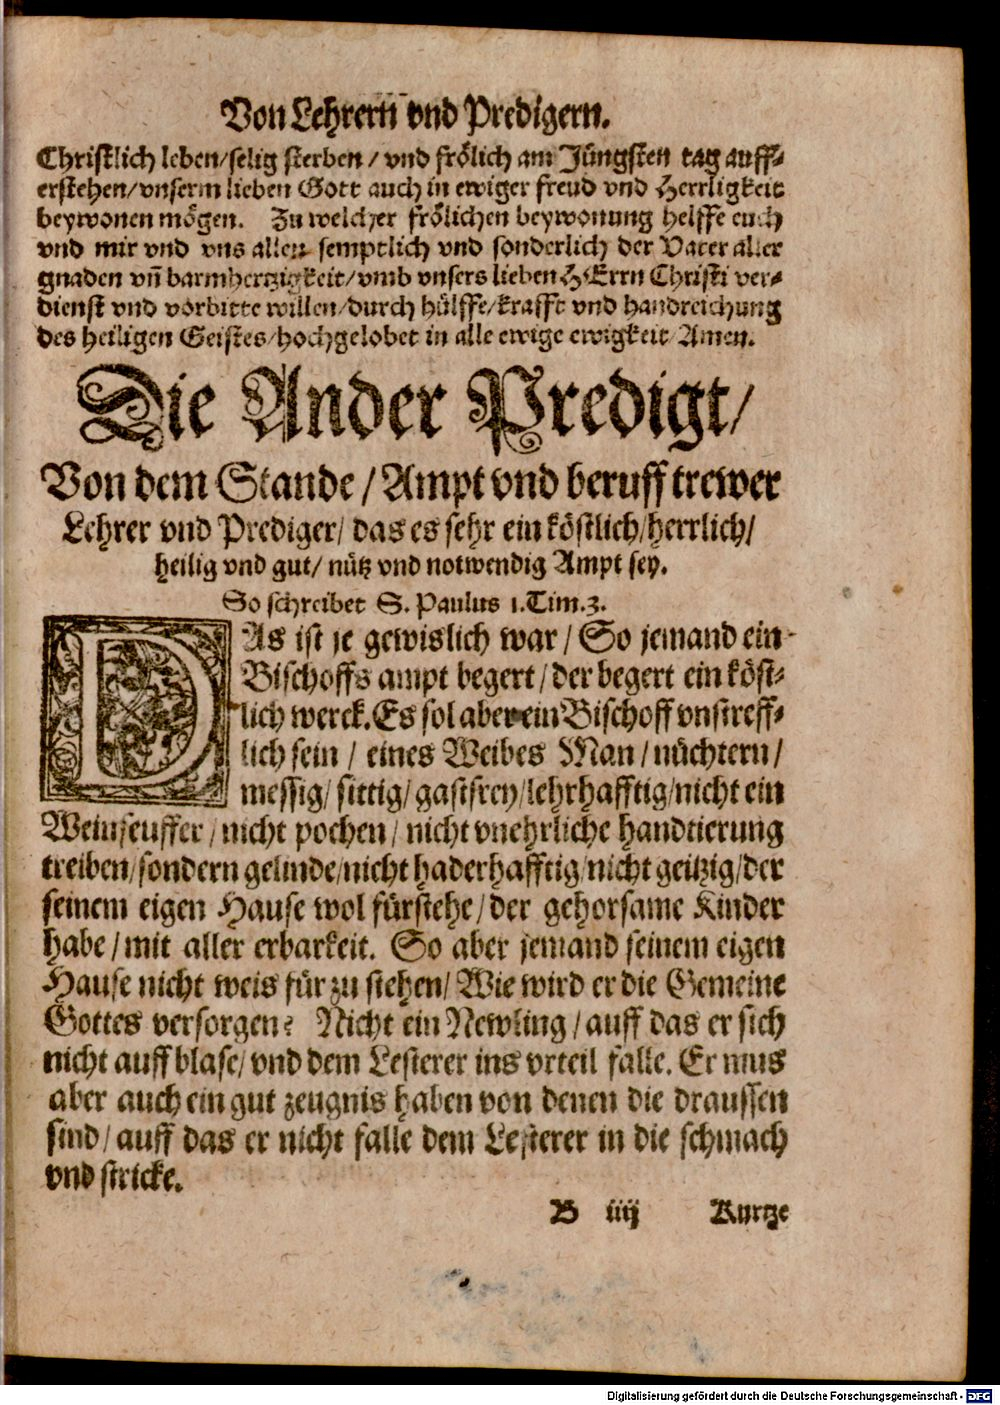 Von Lehrern vnd Predigern.
Christlich leben/selig sterben/ vnd frölich am Jüngsten tag auff-
erstehen/vnserm lieben Gott auch in ewiger freud vnd Herrligkeit
beywonen mögen. Zu welcher frölichen beywonung helffe euch
vnd mir vnd vns allen semptlich vnd sonderlich der Vater aller
gnaden vñ barmhertzigkeit/vmb vnsers lieben HErrn Christi ver-
dienst vnd vorbitte willen/durch hülffe/krafft vnd handreichung
des heiligen Geistes/hochgelobet in alle ewige ewigkeit/Amen.
Die Ander Predigt/
Von dem Stande/Ampt vnd beruff trewer
Lehrer vnd Prediger/ das es sehr ein köstlich/herrlich/
heilig vnd gut/ nütz vnd notwendig Ampt sey.
So schreibet S. Paulus 1.Tim.3.
DAs ist je gewislich war/ So jemand ein
Bischoffs ampt begert/der begert ein köst-
lich werck. Es sol aber ein Bischoff vnstreff-
lich sein/ eines Weibes Man/nüchtern/
messig/ sittig/ gastfrey/lehrhafftig/nicht ein
Weinseuffer/nicht pochen/ nicht vnehrliche handtierung
treiben/sondern gelinde/nicht haderhafftig/nicht geitzig/der
seinem eigen Hause wol fürstehe/der gehorsame Kinder
habe/mit aller erbarkeit. So aber jemand seinem eigen
Hause nicht weis für zu stehen/ Wie wird er die Gemeine
Gottes versorgen? Nicht ein Newling/auff das er sich
nicht auffblase/ vnd dem Lesterer ins vrteil falle. Er mus
aber auch ein gut zeugnis haben von denen die draussen
sind/auff das er nicht falle dem Lesterer in die schmach
vnd stricke.
B iiij Kurtze
Digitalisierung gefördert durch die Deutsche Forschungsgemeinschaft - DFG